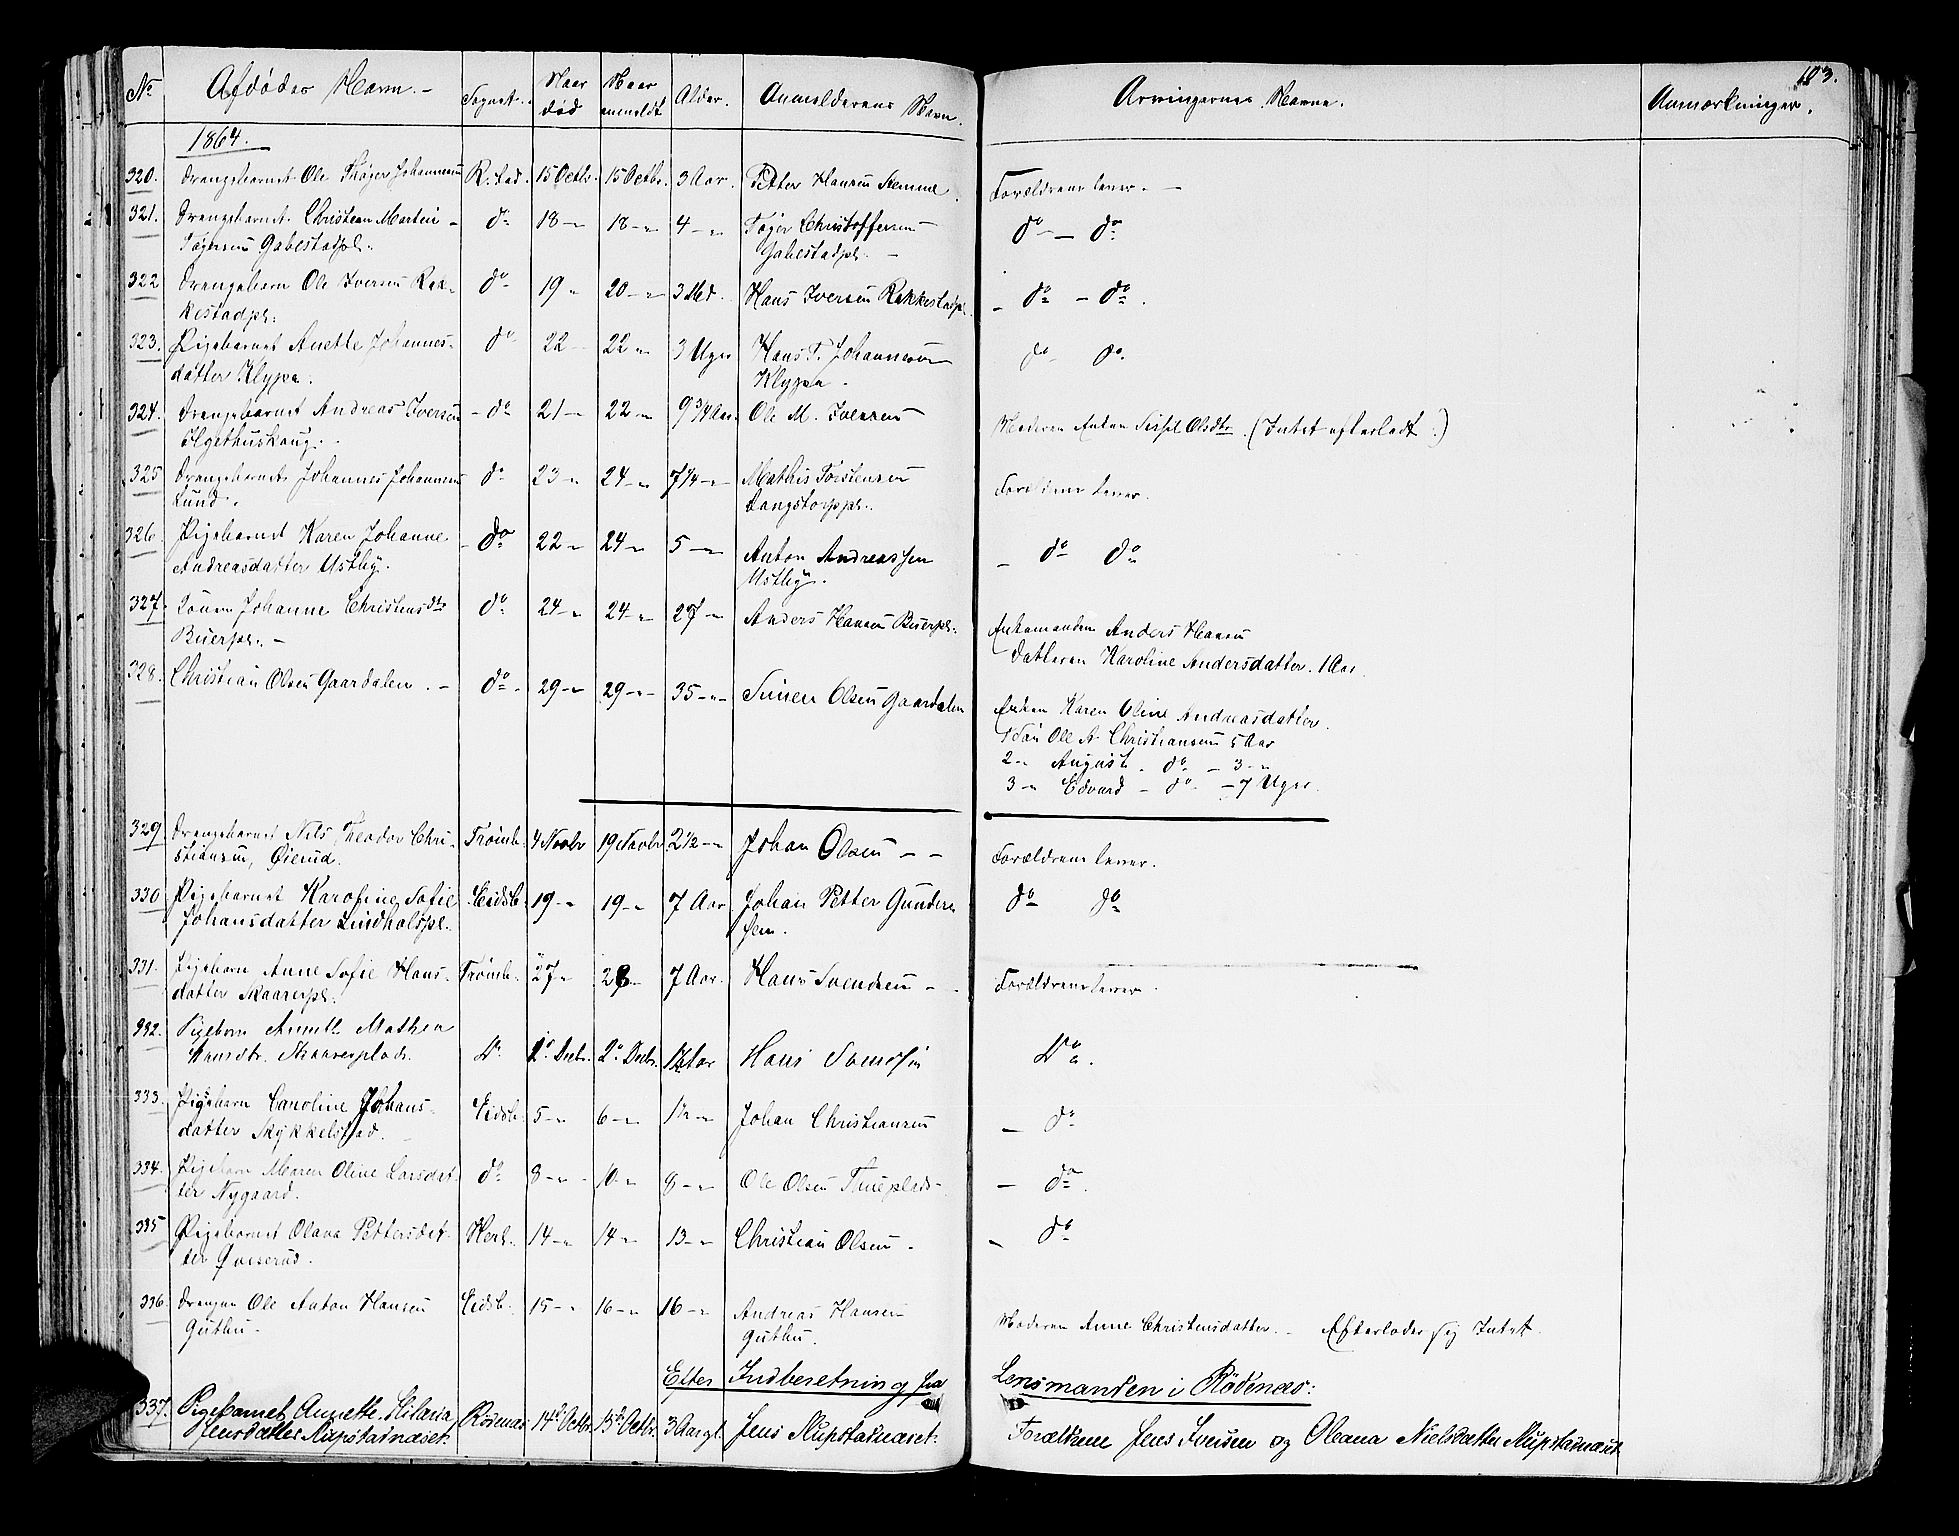 103.
No Afdødes Navn. - Sognet. Naar død Naar anmeldt Alder. Anmelderens Navn. Arvingernes Navne. Anmærkninger.
1864.
320. Drengebarnet Ole Johannesen R.stad. 15 Octbr. 15 Octbr. 3 Aar. Petter Hansen Forældrene lever. -
321. Drengebarnet Christian Martin do 18 -"- 18 -"- 4 -"- Tøger Christoffersen do - do
Tøgersen Gabestadpl. Gabestadpl. -
322 Drengebarn Ole Iversen Rak- do 19 " 20 -"- 3 Md. Hans Iversen Rakkestadpl. - do - do.
kestadpl.
323. Pigebarnet Anette Johannes- do 22 22 " 3 Uger Hans T. Johannesen do do.
datter Klypa. Klypa -
324. Drengebarnet Andreas Iversen - do 21 -"- 22 -"- 9 3/4 Aar. Ole M. Iversen Moderen Enken Olsdtr. (Intet efterladt.)
325 Drengebarnet Johannes Johannesen do 23 -"- 24 -"- 7 1/4 -"- Mathis Torstensen Forældrene lever.
Lund. Langstorppl.
326. Pigebarnet Karen Johanne - do 22 -"- 24 -"- 5 -"- Anton Andreassen - do do
Andreasdatter Ustby. Ustby.
327. Konen Johanne Christensdtr do 24 -"- 24 -"- 27 -"- Anders Hansen Buerpl. Enkemanden Anders Hansen
Buerpl. - Datteren Karoline Andersdatter. 1 Aar.
328. Christian Olsen Gaardalen. - do - 29 -"- 29 -"- 35 -"- Simen Olsen Gaardalen Enken Karen Oline Andreasdatter.
1 Søn Ole A. Christiansen 5 Aar
2 -"- August - do - 3 -"-
3 -"- Edvard - do - 7 Uger.
329 Drengebarnet Nils Theodor Chri- Trømb. 4 Novbr 19 Novbr 2 1/2 -"- Johan Olsen - - Forældrene lever.
stiansen, Øierud.
330 Pigebarnet Karoline Sofie Eidsb. 19 -"- 19 -"- 7 Aar Johan Petter Gunder- do do
Johansdatter Lindholspl. sen.
331. Pigebarn Anne Sofie Hans- Trømb. 27 " 28 - 7 Aar. Hans Svendsen - - Forældrene lever.
datter Skaarerpl.
332. Pigebarn Anette Mathea Do. 1o Decbr. 2o Decbr. 1 1/2 Aar Hans Svendsen Do.
Hansdtr. Skaarerplads.
333. Pigebarn Caroline Johans- Eidsb. 5 -"- 6 -"- 1 1/2 -"- Johan Christiansen - do
datter Mykkelstad.
334. Pigebarn Maren Oline Larsdat- do 8 -"- 10 -"- 8 -"- Ole Olsen - do.
ter Nygaard.
335 Pigebarnet Olava Pettersdat- Herl. 14 -"- 14 " 13 -"- Christian Olsen - - do
ter
336. Drengen Ole Anton Hansen Eidsb. 15 -"- 16 -"- 16 -"- Andreas Hansen Moderen Anne Christensdatter. - Efterlader sig Intet.
Guthu - Guthu.
Efter Indberetning fra Lensmanden i Rødenæs:
337. Pigebarnet Annette Hilaria Rødenæs 14de Octbr. 15de Octbr. 3 Aar gl. Jens Nupstadnæset. Forældrene Jens Iversen og Oleana Nielsdatter Nupstadnæset
Jensdatter Nupstadnæset.